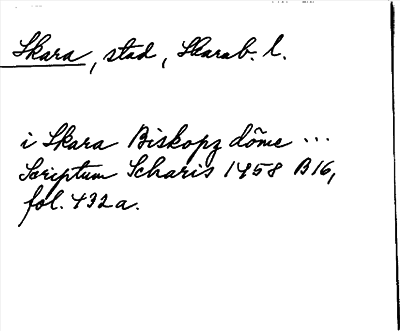 Skara, stad, Skarab. l.
i Skara Biskopz dõme ...
Scriptum Scharis 1458 B16,
fol. 432a.